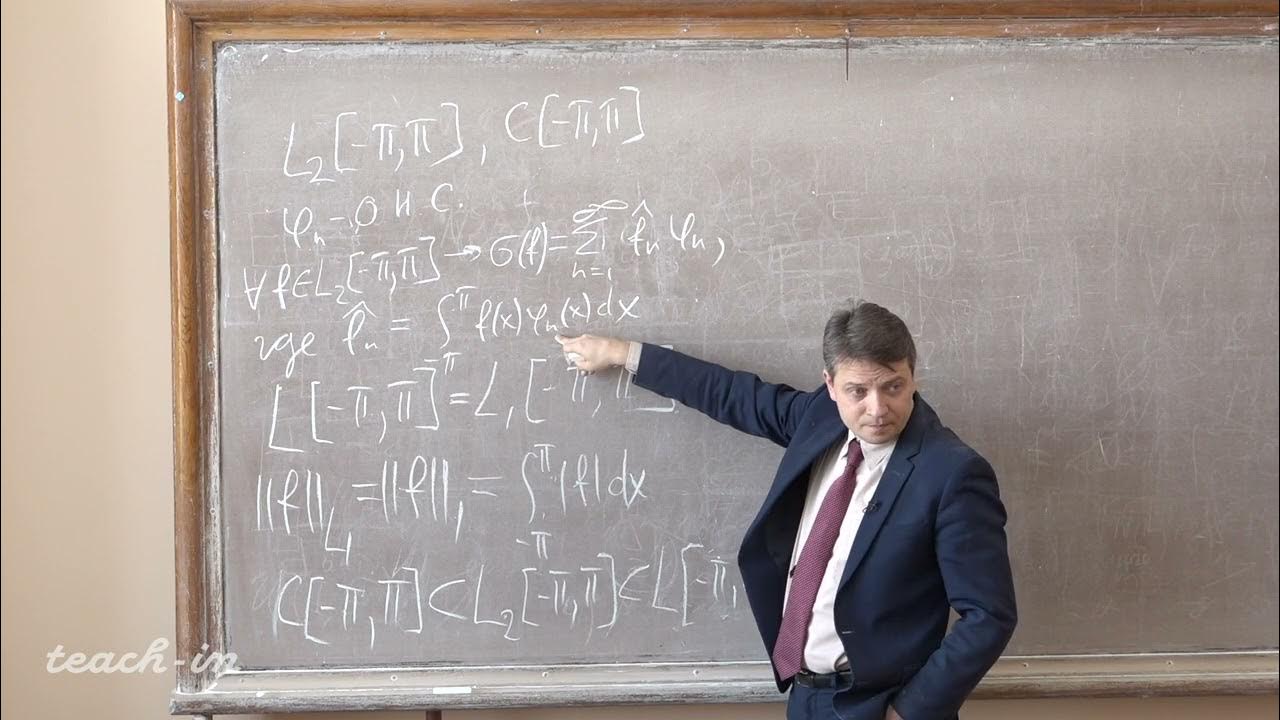 L₂[-π,π], C[-π,π]
φₙ - О.Н.С.
∀f∈L₂[-π,π] → σ(f)=∑ₙ₌₁^∞ f̂ₙ φₙ,
где f̂ₙ = ∫_{-π}^{π} f(x)φₙ(x)dx
L[-π,π]=L₁[-π,π]
||f||_{L₁} = ||f||₁ = ∫_{-π}^{π} |f|dx
C[-π,π]⊂L₂[-π,π]⊂L[-π,
teach-in